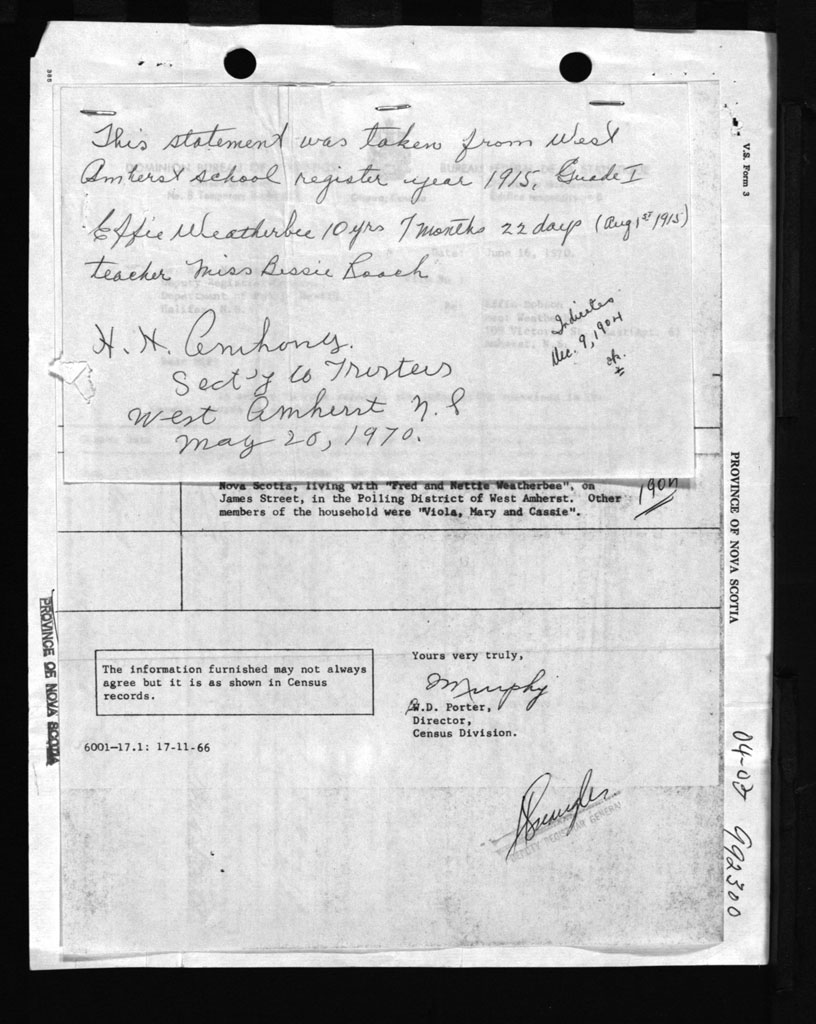 This statement was taken from West
Amherst school register year 1915, Grade I
Effie Weatherbee 10 yrs 7 months 22 days (Aug 1st 1915)
teacher Miss Bessie Roach
Indicates
Dec. 9, 1904
ok.
H. H. Anthony.
Sect'y to Trustees
West Amherst N.S
May 20, 1970.
Nova Scotia, living with "Fred and Nettie Weatherbee", on
James Street, in the Polling District of West Amherst. Other
members of the household were "Viola, Mary and Cassie".
1904
The information furnished may not always
agree but it is as shown in Census
records.
Yours very truly,
Murphy
W.D. Porter,
Director,
Census Division.
6001-17.1: 17-11-66
DEPUTY REGISTRAR GENERAL
V.S. Form 3
PROVINCE OF NOVA SCOTIA
PROVINCE OF NOVA SCOTIA
04-02 992300
June 16, 1970.